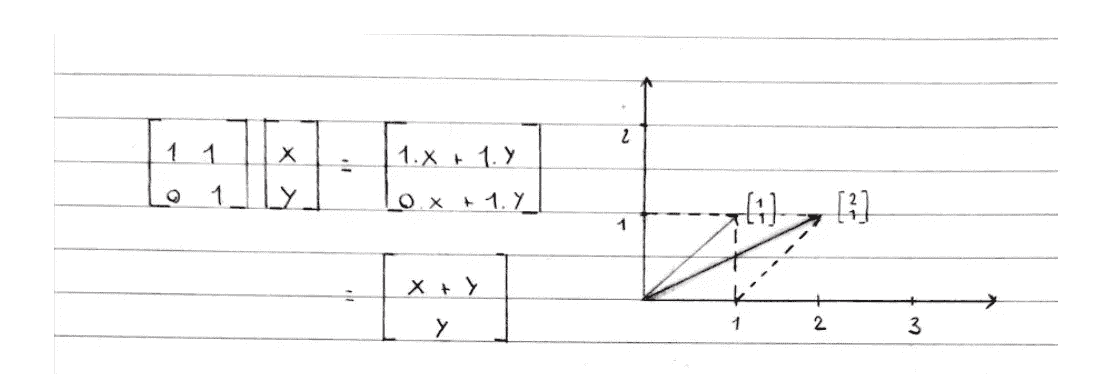 [1 1] [x] = [1.x + 1.y]
[0 1] [y] [0.x + 1.y]
= [x + y]
[y]
2
1
[1]
[1]
[2]
[1]
1 2 3